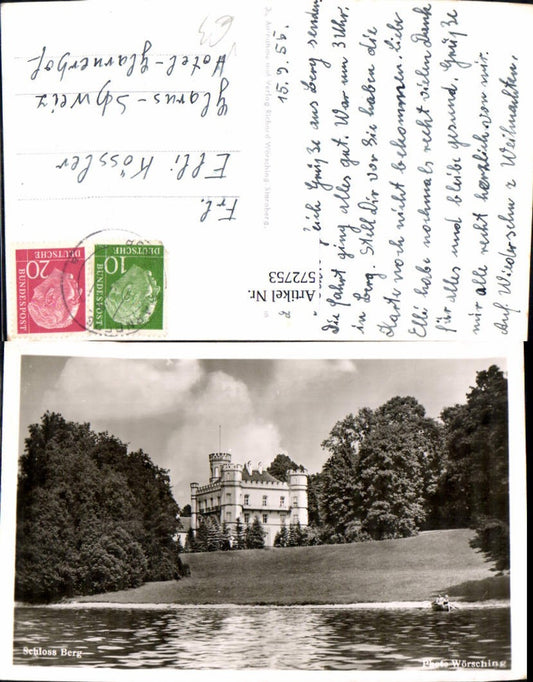 Frl.
Elli Kössler
Glarus-Schweiz
Hotel-Glarnerhof
DEUTSCHE
BUNDESPOST
20
DEUTSCHE
BUNDESPOST
10
15.9.56.
Grüße aus Berg senden
Die Fahrt ging alles gut. War um 3 Uhr.
in Berg. Stell Dir vor Sie haben die
Karte noch nicht bekommen. Liebe
Elli habe nochmals recht vielen Dank
für alles und bleibe gesund. Grüße
mir alle recht herzlich von mir.
Auf Wiedersehn z Weihnachten.
Artikel Nr.
572753
Schloss Berg
Photo Wörsching